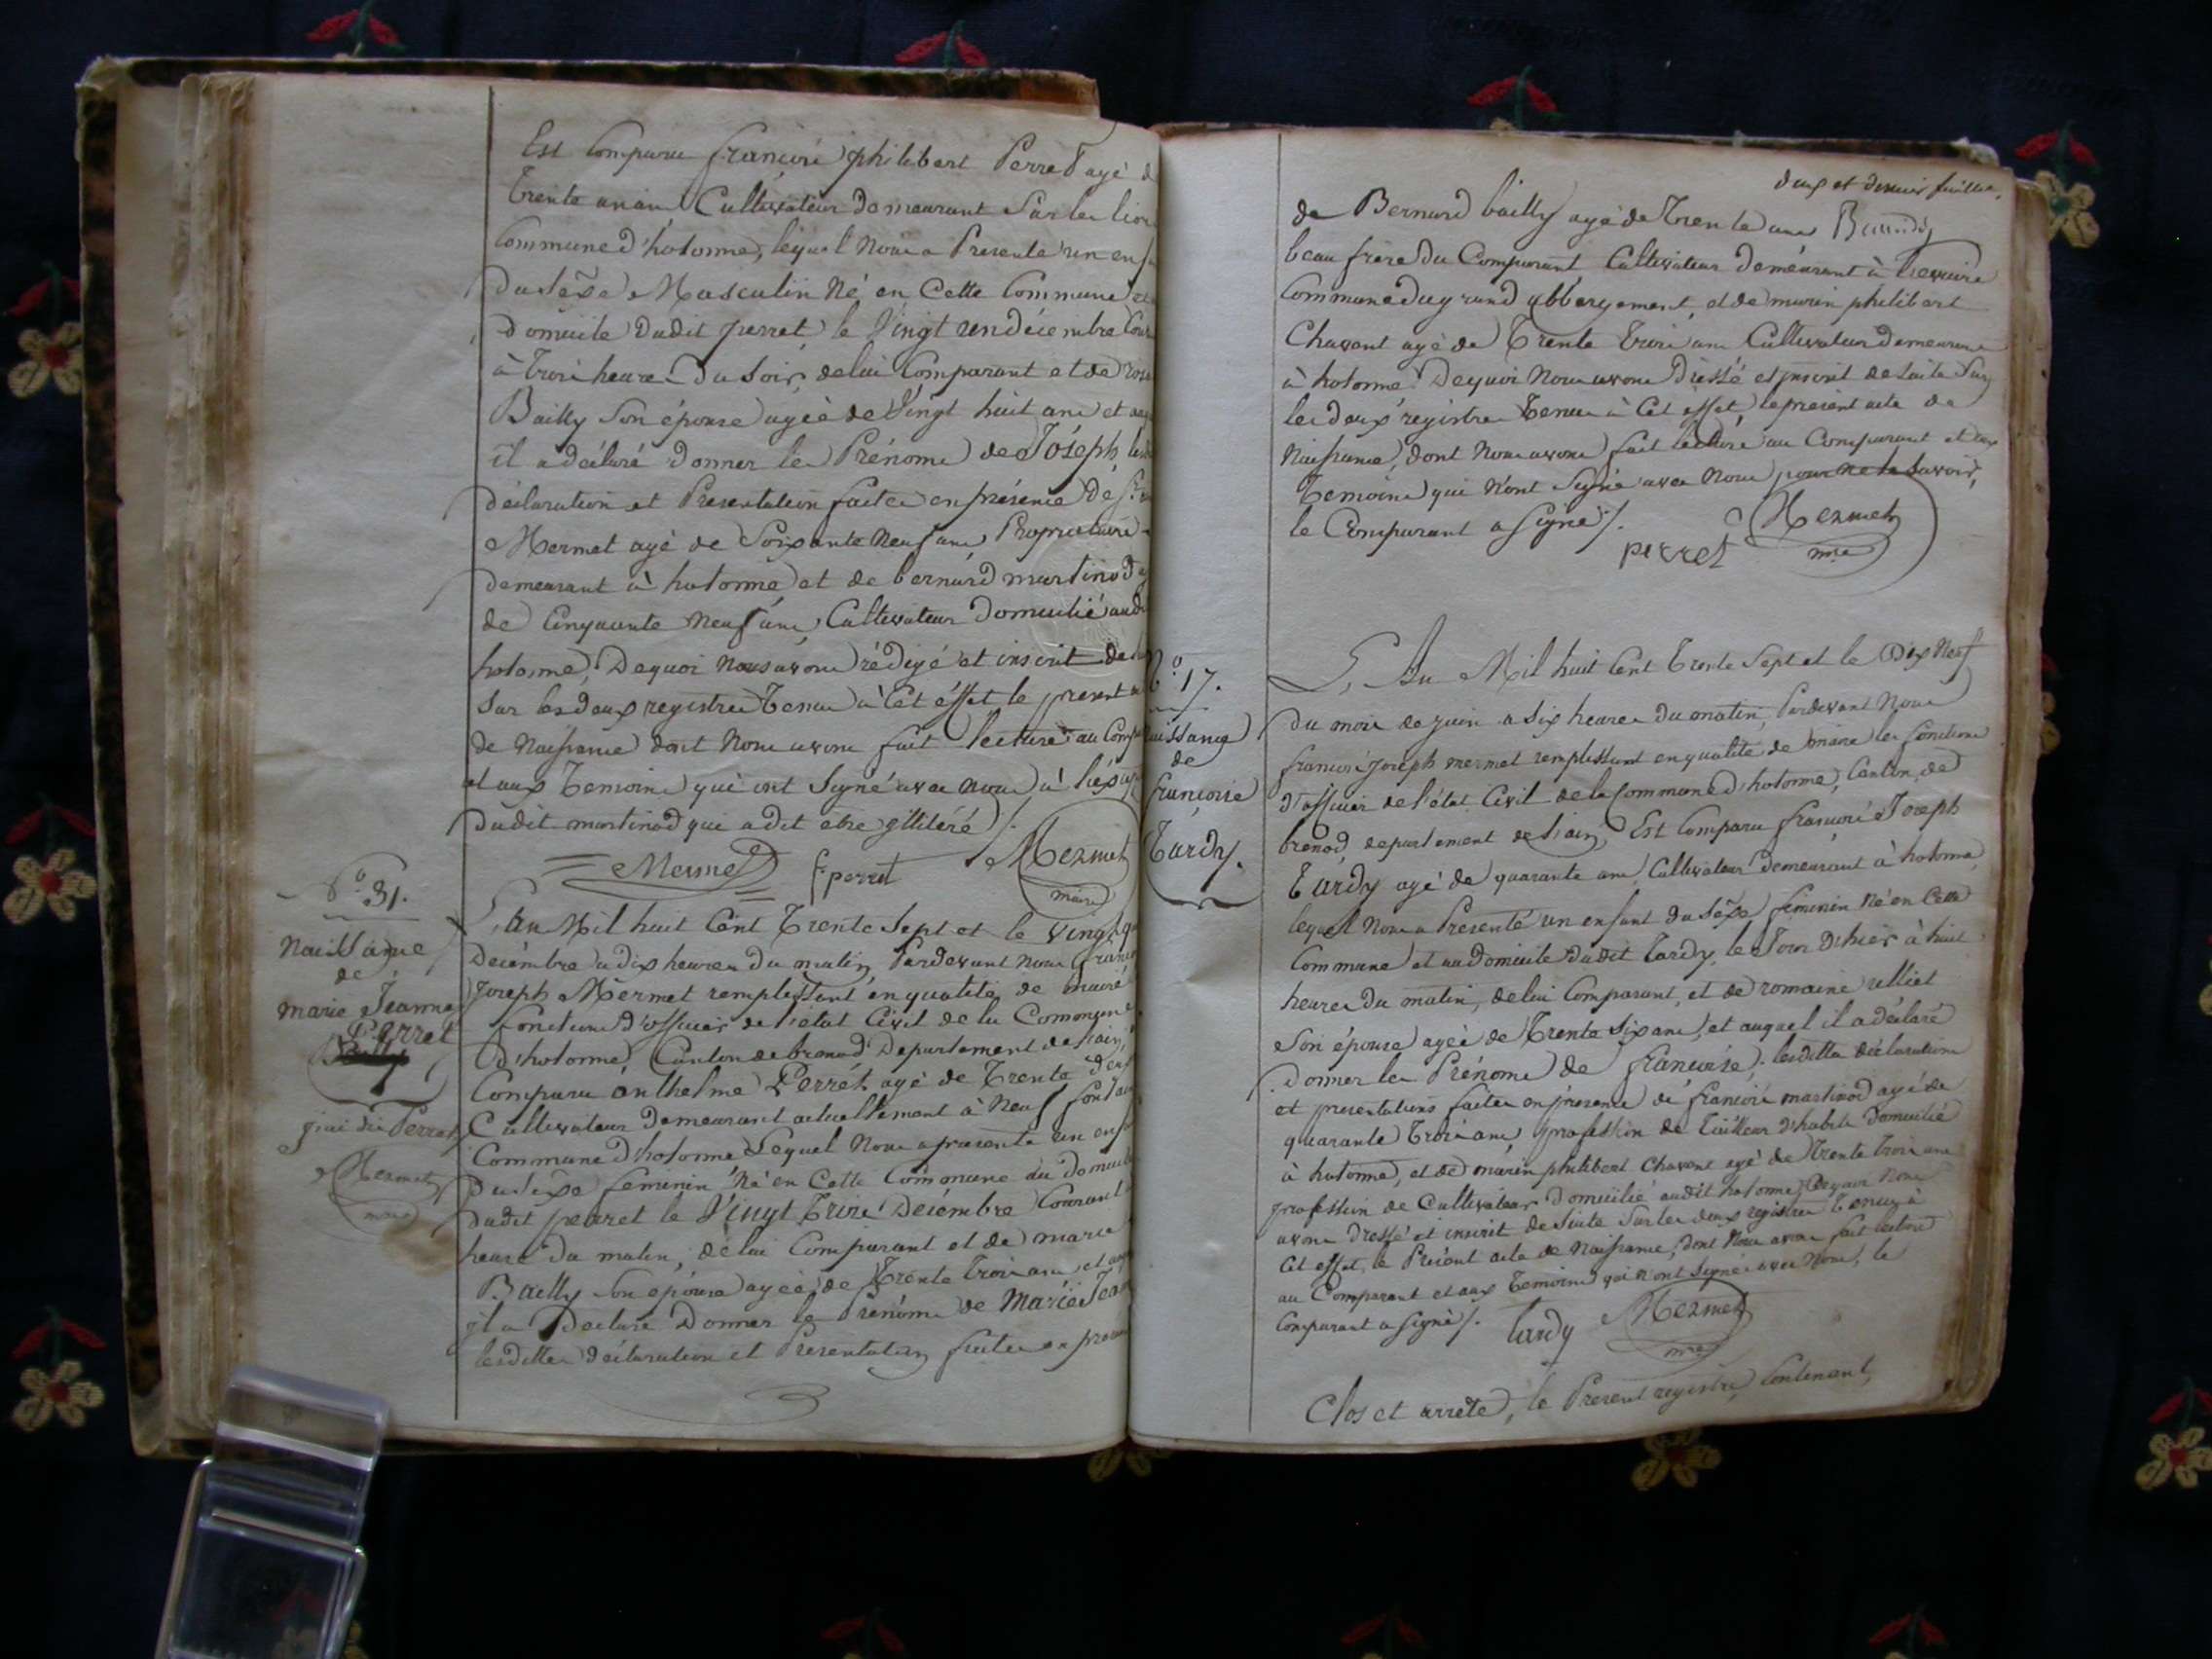 Est Comparu françois philibert Perret agé d
Trente un ans Cultivateur demeurant Sur les
Commune d'hotonne, lequel Nous a Presenté un enf
Du Sèxe Masculin Né en Cette Commune
Domicile Dudit perret, le Vingt un décembre Cour
à Trois heures Du Soir, de lui Comparant et de rose
Bailly Son épouse agée de Vingt huit ans et
il a déclaré donner les Prénoms de Joséph
déclaration et Presentation faites en présence de
Mermet agé de Soixante Neuf ans Propriétaire
demeurant à hotonne et de bernard martinod
de Cinquante Neuf ans, Cultivateur Domicilié aud
hotonne, De quoi Nous avons rédigé et inscrit de
Sur les deux registres Tenus à Cet éffet le present
de Naissance dont Nous avons fait lecture au Comp
et aux Temoins qui ont Signé avec Nous à l'éxcep
Dudit martinod qui a dit etre illitéré ./.
Mermet f. perret Mermet
maire
N.° 31.
Naissance
de
marie Jeanne
Perret
Bailly
j'ai dis Perret
Mermet
mre
L'An Mil huit Cent Trente Sept et le Vingt
Décembre a dix heures du matin, Pardevant nous
Joseph Mermet remplissant en qualité de maire
fonctions d'officier de l'état Civil de la Commune
d'hotonne, Canton de brenod Departement de l'ain,
Comparu anthelme Perrét agé de Trente deux
Cultivateur Demeurant actuellement à Neuf fontain
Commune d'hotonne Lequel Nous a presenté un enf
Du Sexe féminin Né en Cette Commune au domicile
dudit perret le Vingt Trois Décembre Courant
heure du matin, de lui Comparant et de marie
Bailly Son épouse agée de Trente Trois ans et
il a Déclaré Donner les Prénoms de Marie Jean
lesdittes déclaration et Presentation faites en
deux et dernier feuillet.
de Bernard bailly agé de Trente ans
beau frère du Comparant Cultivateur deméurant à
Commune du grand abbergement, et de marin philibert
Chavent agé de Trente Trois ans Cultivateur demeurant
à hotonne. De quoi Nous avons Dressé et inscrit de Suite Sur
les deux régistres Tenus à Cet effet, le present acte de
Naissance, dont Nous avons fait lecture au Comparant et aux
Temoins qui n'ont Signé avec Nous pour ne le Savoir,
le Comparant a Signé ./.
perret Mermet
mre
N.° 17.
Naissance
de
francoise
Tardy.
L'An Mil huit Cent Trente Sept et le Dix Neuf
du mois de juin a Six heures du matin, Pardevant Nous
francois joseph mermet remplissant en qualité de maire les fonctions
d'officier de l'état Civil de la Commune d'hotonne, Canton de
brénod departement de l'ain, Est Comparu francois Joseph
Tardy agé de quarante ans Cultivateur demeurant à hotonne,
lequel Nous a Presenté un enfant du Sèxe féminin Né en Cette
Commune et au domicile dudit tardy, le Jour D'hiér à huit
heures du matin, de lui Comparant, et de romaine
Son épouse agée de Trente Six ans, et auquel il a déclaré
donner les Prénoms de francoise. lesdittes déclarations
et presentations faites en présence de francois martinod agé de
quarante Trois ans, profession de Tailleur d'habits domicilié
à hotonne, et de marin philibert chavent agé de Trente trois ans
profession de Cultivateur domicilié audit hotonne, De quoi Nous
avons Dressé et inscrit de Suite Sur les deux registres Tenus à
Cet effet, le Présent acte de Naissance, dont Nous avons fait lecture
au Comparant et aux Temoins qui n'ont Signé avec Nous, le
Comparant a Signé ./. tardy Mermet
mre
Clos et arreté, le Present registre, Contenant,